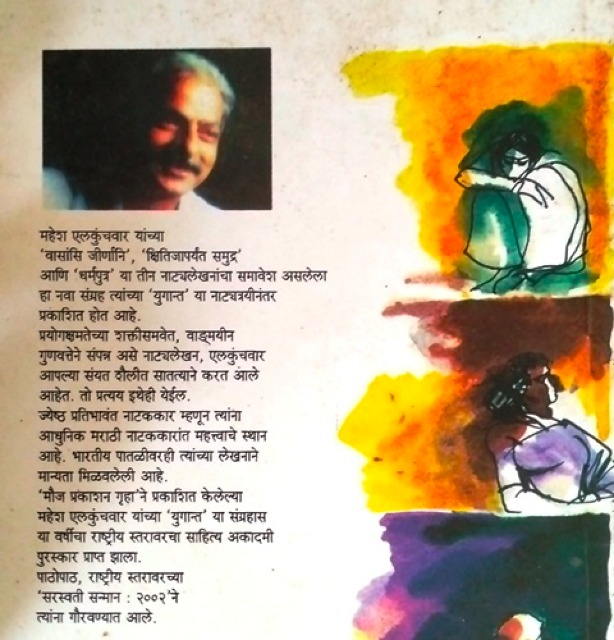 महेश एलकुंचवार यांच्या
'वासांसि जीर्णानि', 'क्षितिजापर्यंत समुद्र'
आणि 'धर्मपुत्र' या तीन नाट्यलेखनांचा समावेश असलेला
हा नवा संग्रह त्यांच्या 'युगान्त' या नाट्यत्रयीनंतर
प्रकाशित होत आहे.
प्रयोगक्षमतेच्या शक्तीसमवेत, वाङ्मयीन
गुणवत्तेने संपन्न असे नाट्यलेखन, एलकुंचवार
आपल्या संयत शैलीत सातत्याने करत आले
आहेत. तो प्रत्यय इथेही येईल.
ज्येष्ठ प्रतिभावंत नाटककार म्हणून त्यांना
आधुनिक मराठी नाटककारांत महत्त्वाचे स्थान
आहे. भारतीय पातळीवरही त्यांच्या लेखनाने
मान्यता मिळवलेली आहे.
'मौज प्रकाशन गृहा'ने प्रकाशित केलेल्या
महेश एलकुंचवार यांच्या 'युगान्त' या संग्रहास
या वर्षीचा राष्ट्रीय स्तरावरचा साहित्य अकादमी
पुरस्कार प्राप्त झाला.
पाठोपाठ, राष्ट्रीय स्तरावरच्या
'सरस्वती सन्मान : २००२'ने
त्यांना गौरवण्यात आले.